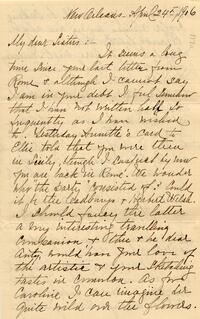 New Orleans. April 24th, 1906
My dear Sisters:-
It seems a long
time since your last letter from
Rome & although I cannot say
I am in your debt I feel somehow
that I have not written half so
frequently as I have wished
to. Yesterday Annette's card to
Ellie told that you were then
in Sicily, though I confess by now
you are back in Rome. We wonder
who the party consisted of? Could
it be the Cadburys & Herbert Welsh.
I should fancy the latter
a very interesting travelling
companion & Ethie & he dear
Anty, would have your love of
the artistic & your sketching
tastes in common. As for
Caroline I can imagine her
quite wild over the flowers.